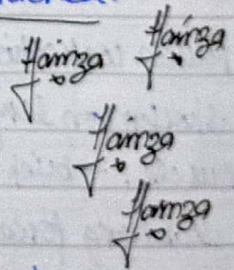 Hamza
Hamza
Hamza
Hamza